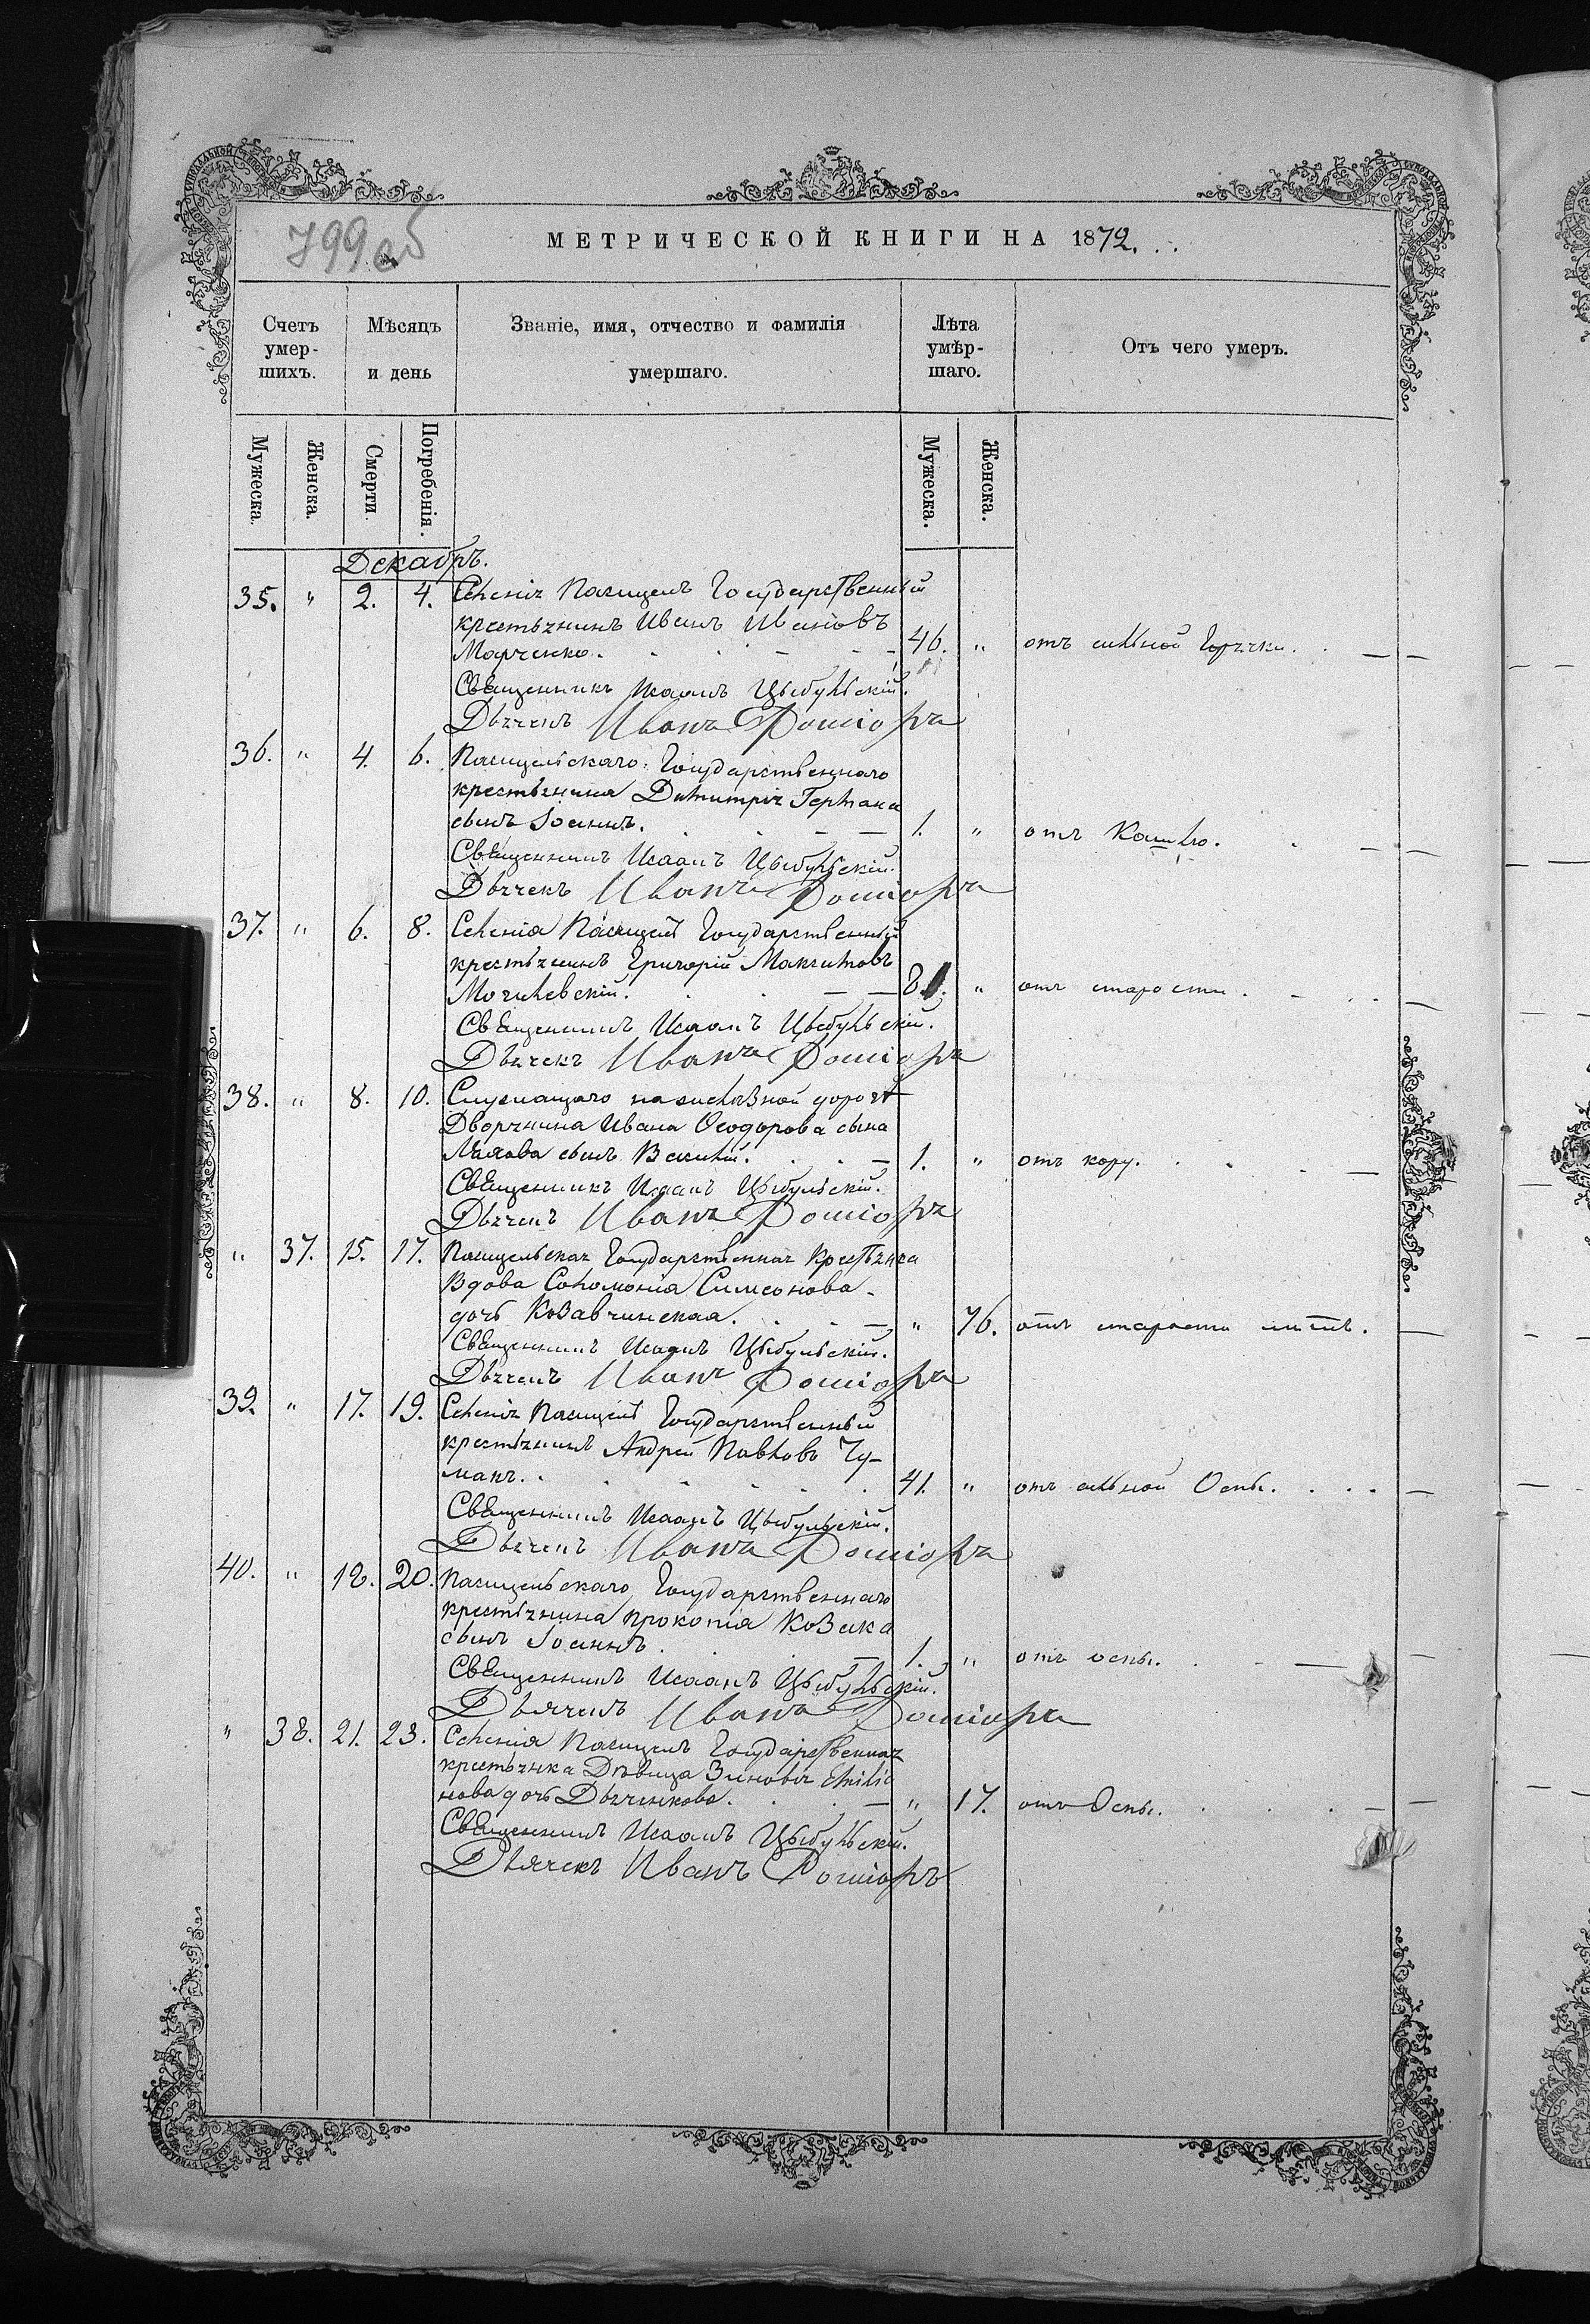 799об
МЕТРИЧЕСКОЙ КНИГИ НА 1872.
Счетъ умер-шихъ.
Мѣсяцъ и день
Званіе, имя, отчество и фамилія умершаго.
Лѣта умѣр-шаго.
Отъ чего умеръ.
Мужеска.
Женска.
Смерти.
Погребенія.
Мужеска.
Женска.
Декабрь.
35. " 2. 4. Селенія Пасицелъ Государственный
крестьянинъ Иванъ Ивановъ
Марченко. 46. " отъ сильной Горячки.
Священникъ Исаакъ Цыбульскій.
Дьячекъ Иванъ
36. " 4. 6. Пасицельскаго Государственнаго
крестьянина Димитрія Германа
сынъ Іоаннъ. 1. " отъ Кашлю.
Священникъ Исаакъ Цыбульскій.
Дьячекъ Иванъ
37. " 6. 8. Селенія Пасицелъ Государственный
крестьянинъ Григорій Максимовъ
Могилевскій. " отъ старости.
Священникъ Исаакъ Цыбульскій.
Дьячекъ Иванъ
38. " 8. 10. Служащаго на желѣзной дорогѣ
Дворянина Ивана Ѳеодорова сына
сынъ Василій. 1. " отъ кору.
Священникъ Исаакъ Цыбульскій.
Дьячекъ Иванъ
" 37. 15. 17. Пасицельская Государственная Крестьянка
Вдова Соломонія Симеонова
дочь Козавчинская. " 76. отъ старости лѣтъ.
Священникъ Исаакъ Цыбульскій.
Дьячекъ Иванъ
39. " 17. 19. Селенія Пасицелъ Государственный
крестьянинъ Андрей Павловъ Чу-
макъ. 41. " отъ сильной Оспы.
Священникъ Исаакъ Цыбульскій.
Дьячекъ Иванъ
40. " 18. 20. Пасицельскаго Государственнаго
крестьянина Прокопія Козака
сынъ Іоаннъ. 1. " отъ оспы.
Священникъ Исаакъ Цыбульскій.
Дьячекъ Иванъ
" 38. 21. 23. Селенія Пасицелъ Государственная
крестьянка Дѣвица Зиновія Емилiа
нова дочь Дьяченкова. " 17. отъ Оспы.
Священникъ Исаакъ Цыбульскій.
Дьячекъ Иванъ